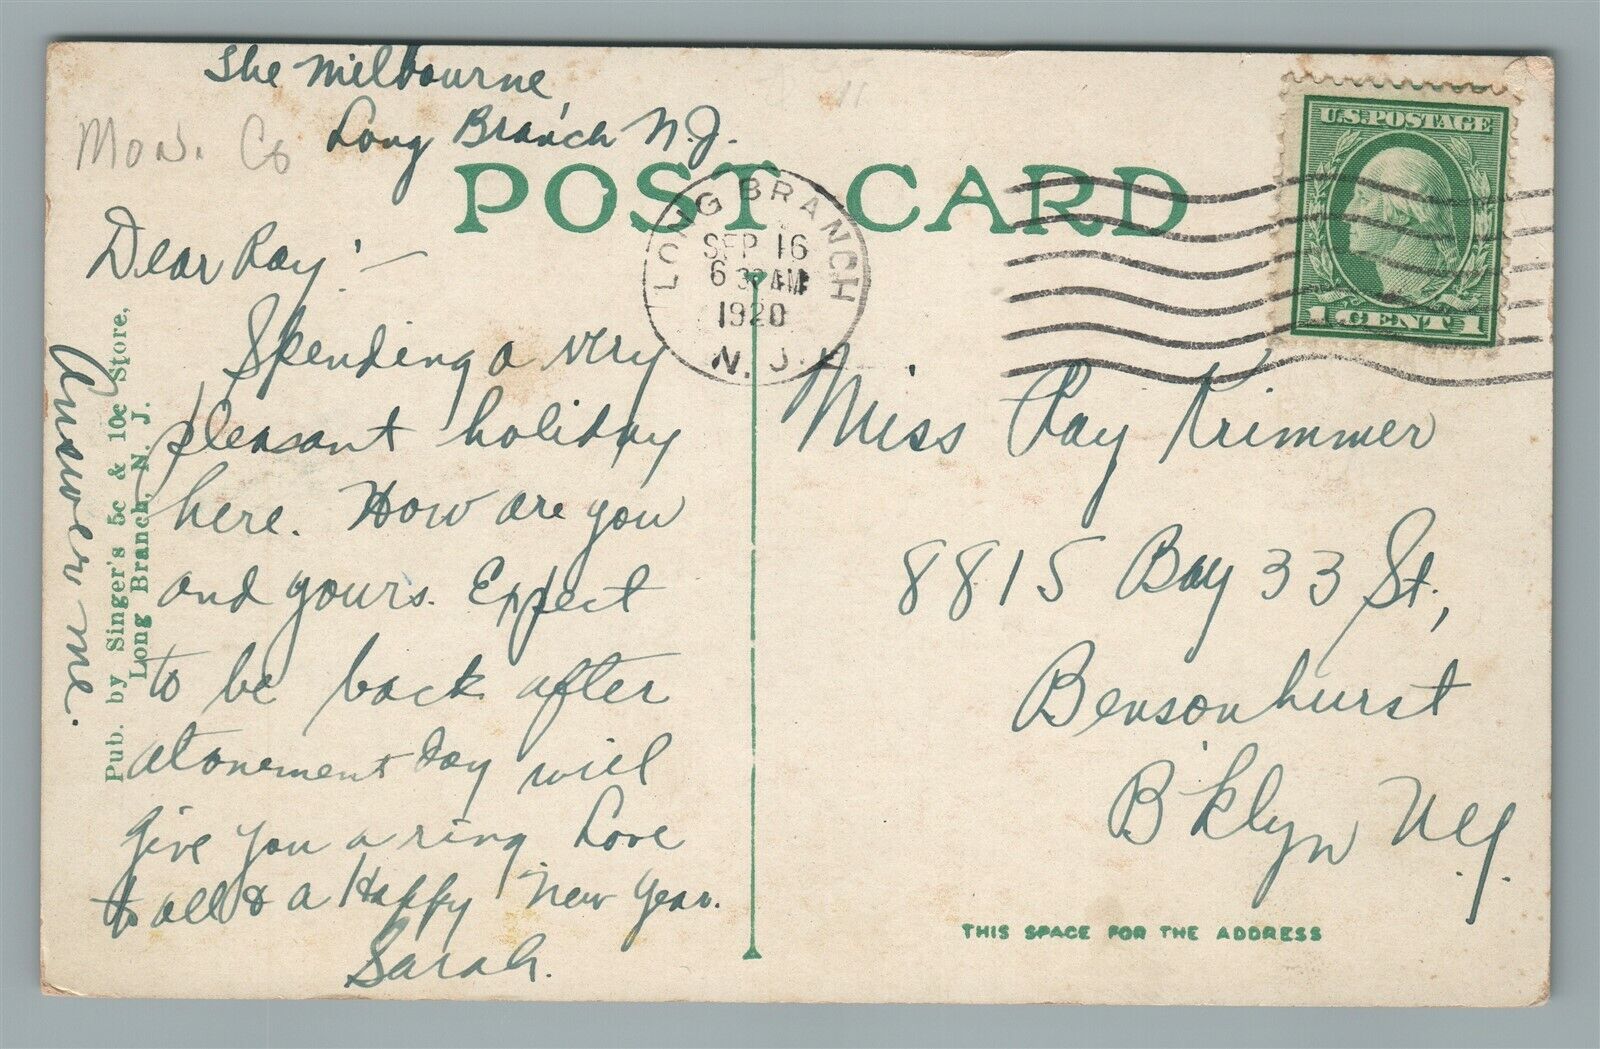 The Milbourne,
Long Branch N.J.
Mon. Co
POST CARD
LONG BRANCH
SEP 16
6 30 AM
1920
N. J.
U.S. POSTAGE
1 CENT 1
Dear Ray! —
Spending a very
pleasant holiday
here. How are you
and yours. Expect
to be back after
atonement day will
give you a ring Love
to all & a Happy New Year.
Sarah.
Answer me.
Pub. by Singer's 5c & 10c Store,
Long Branch, N. J.
Miss Ray Krimmer
8815 Bay 33 St.,
Bensonhurst
B'klyn N.Y.
THIS SPACE FOR THE ADDRESS